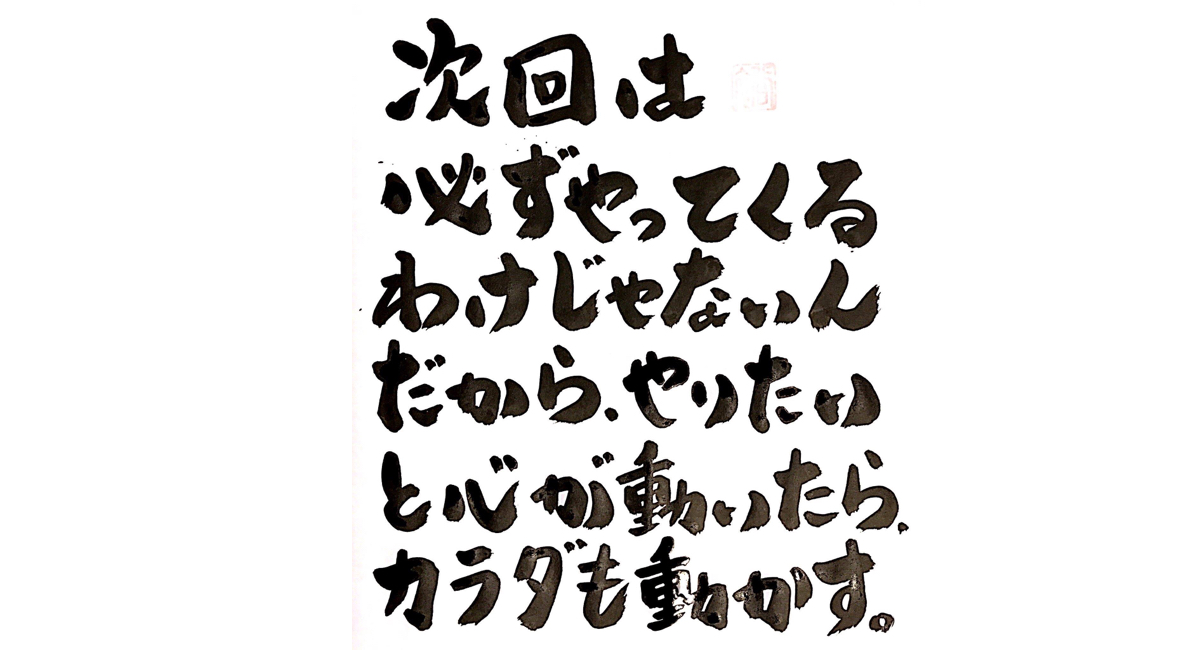 次回は
必ずやってくる
わけじゃないん
だから、やりたい
と心が動いたら、
カラダも動かす。